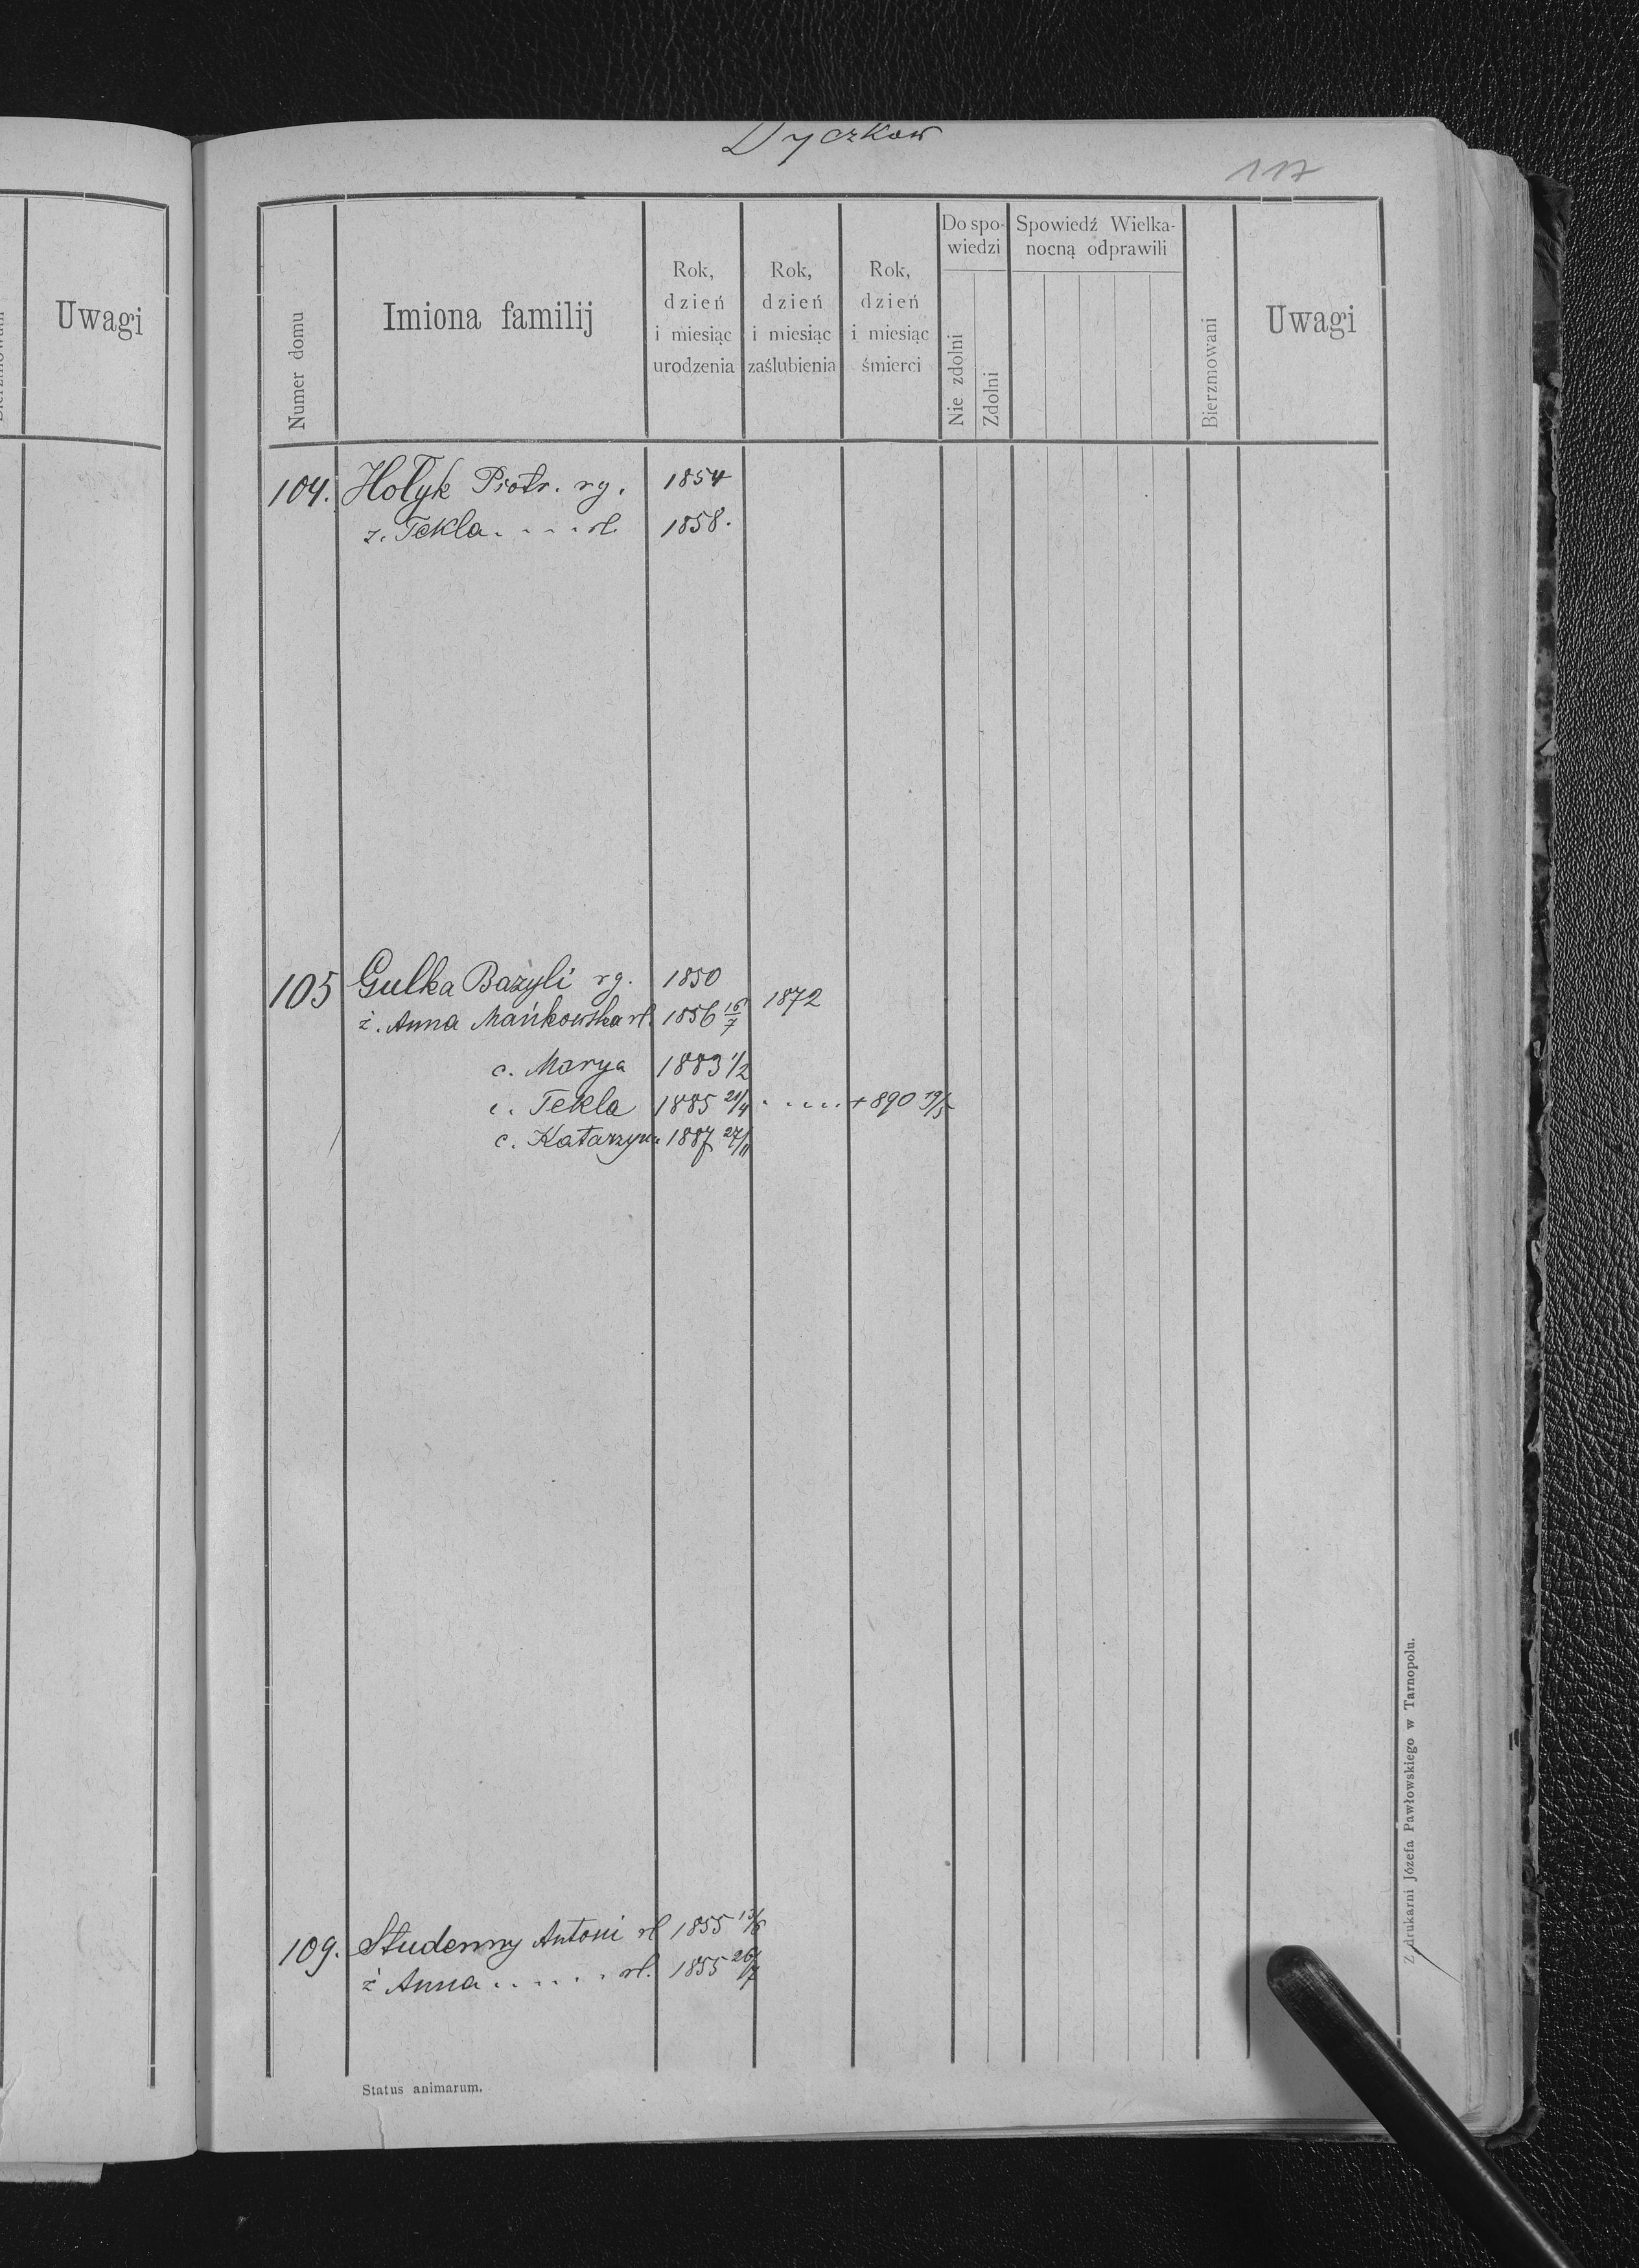 Dyczkow
117
Uwagi
Numer domu
Imiona familij
Rok, dzień i miesiąc urodzenia
Rok, dzień i miesiąc zaślubienia
Rok, dzień i miesiąc śmierci
Do spo-wiedzi
Nie zdolni
Zdolni
Spowiedź Wielka-nocną odprawili
Bierzmowani
Uwagi
104. Hołyk Piotr. rg. 1854
ż. Tekla . . . . rł. 1858.
105 Gulka Bazyli rg. 1850
ż. Anna Mańkowska rł. 1856 16/7 1872
c. Marya 1883 1/2
c. Tekla 1885 21/4 . . . . . + 890 19/5
c. Katarzyna 1887 27/11
109. Studenny Antoni rł 1855 13/6
ż Anna . . . . . . rł. 1855 26/7
Status animarum.
Z drukarni Józefa Pawłowskiego w Tarnopolu.